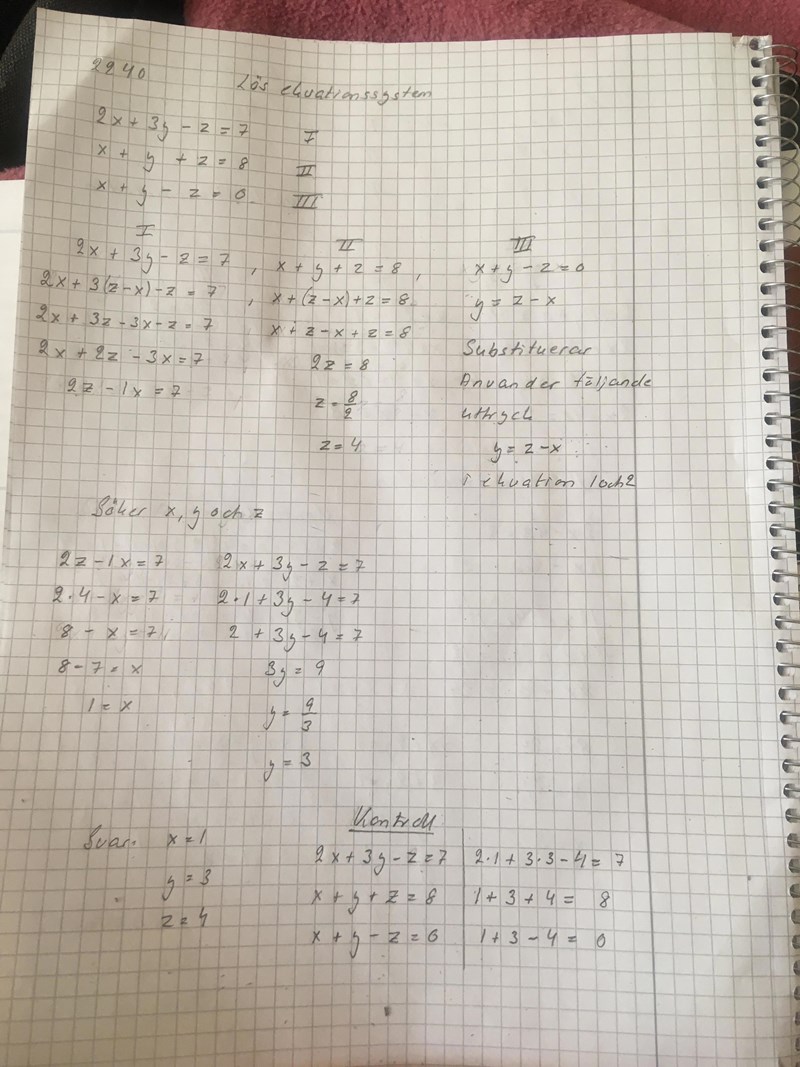 2240
Lös ekvationssystem
2x + 3y - z = 7 I
x + y + z = 8 II
x + y - z = 0 III
I II III
2x + 3y - z = 7 , x + y + z = 8 , x + y - z = 0
2x + 3(z - x) - z = 7 , x + (z - x) + z = 8 y = z - x
2x + 3z - 3x - z = 7 x + z - x + z = 8
2x + 2z - 3x = 7 2z = 8 Substituerar
2z - 1x = 7 z = 8/2 Använder följande
uttryck
z = 4 y = z - x
i ekvation 1 och 2
Söker x, y och z
2z - 1x = 7 2x + 3y - z = 7
2·4 - x = 7 2·1 + 3y - 4 = 7
8 - x = 7 2 + 3y - 4 = 7
8 - 7 = x 3y = 9
1 = x y = 9/3
y = 3
Kontroll
Svar. x = 1
y = 3
z = 4
2x + 3y - z = 7 2·1 + 3·3 - 4 = 7
x + y + z = 8 1 + 3 + 4 = 8
x + y - z = 0 1 + 3 - 4 = 0